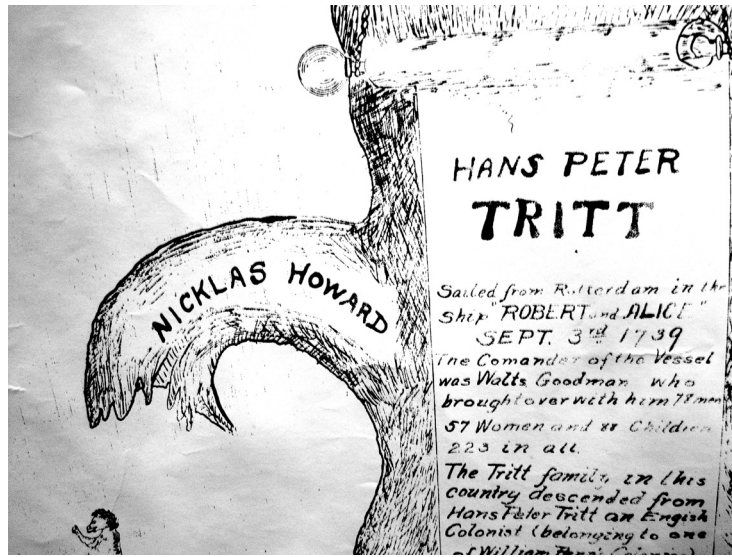 NICKLAS HOWARD
HANS PETER
TRITT
Sailed from Rotterdam in the
Ship "ROBERT and ALICE"
SEPT. 3rd 1739
The Comander of the Vessel
was Walts Goodman who
brought over with him 78 men
57 Women and 88 Children
223 in all.
The Tritt family in this
country descended from
Hans Peter Tritt an Engish
Colonist (belonging to one
of William Penn